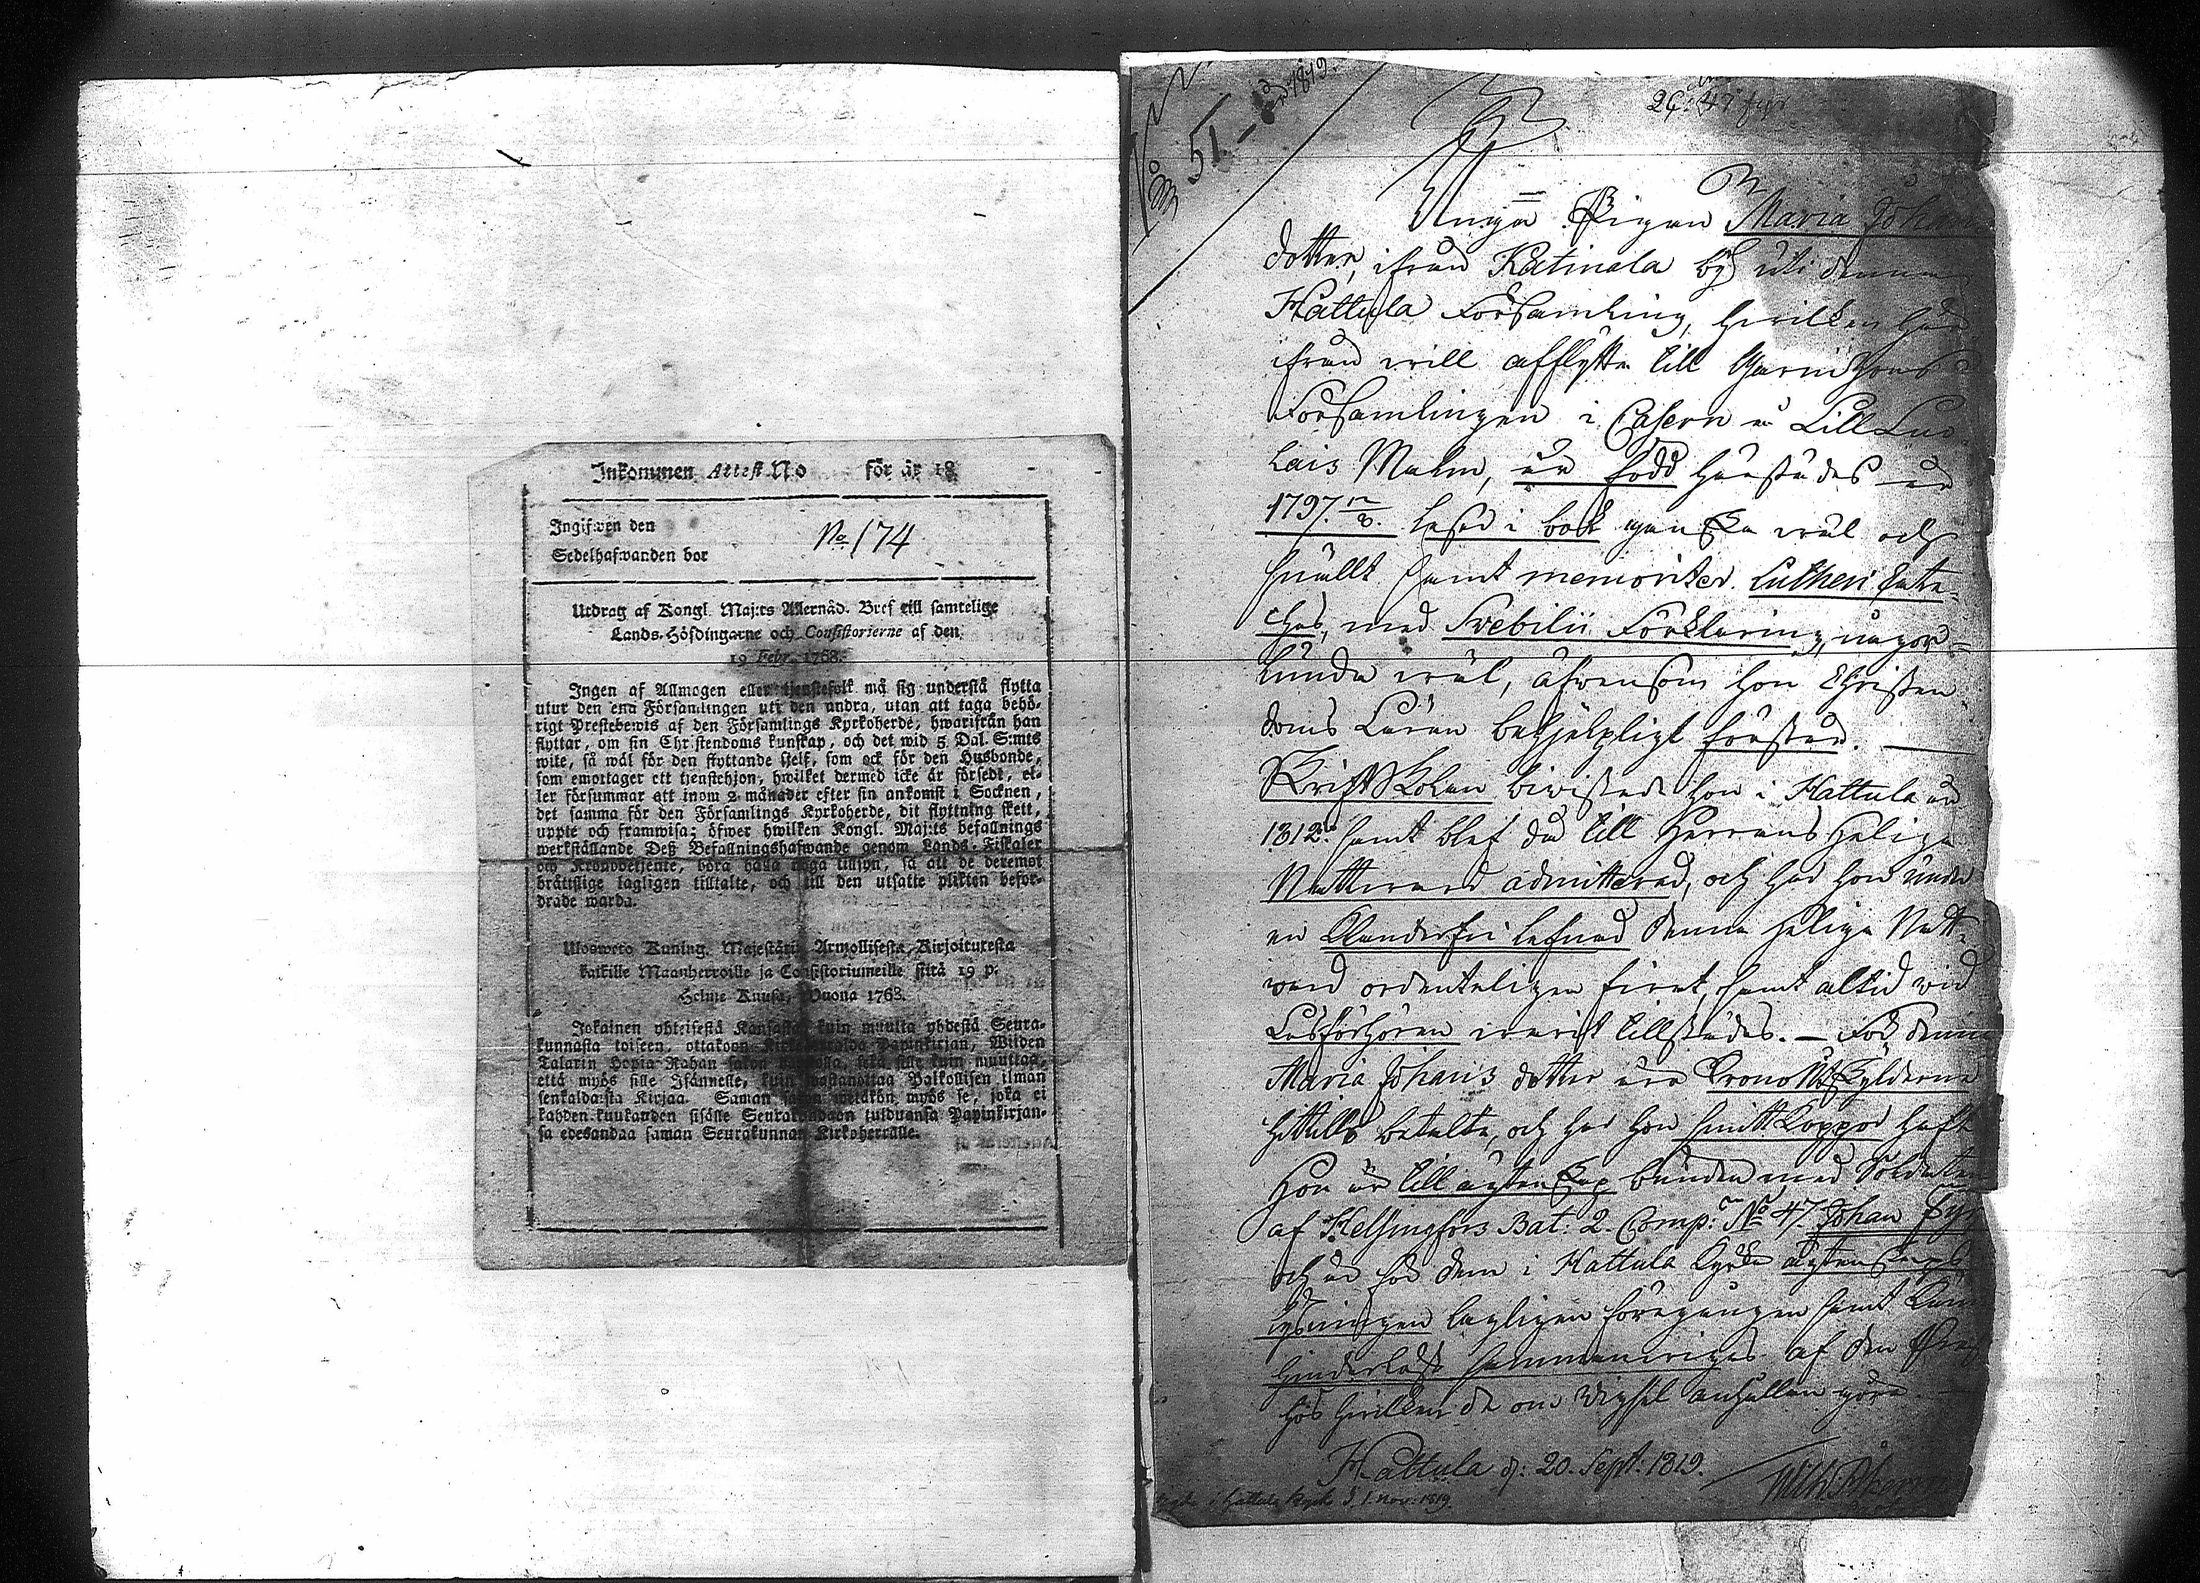 Inkommen Attest No för år 18
Ingifven den
Sedelhafwanden bor
No 174
Utdrag af Kongl. Maj:ts Allernåd. Bref till samtelige
Lands-Höfdingarne och Consistorierne af den
19 Febr. 1768.
Ingen af Allmogen eller tjenstefolk må sig understå flytta
utur den ena Församlingen uti den andra, utan att taga behö-
rigt Prestebewis af den Församlings Kyrkoherde, hwarifrån han
flyttar, om sin Christendoms kunskap, och det wid 5 Dal. S:mts
wite, så wäl för den flyttande sjelf, som ock för den Husbonde,
som emottager ett tjenstehjon, hwilket dermed icke är försedt, el-
ler försummar att inom 2 månader efter sin ankomst i Socknen,
det samma för den Församlings Kyrkoherde, dit flyttning skett,
uppte och framwisa; öfwer hwilken Kongl. Maj:ts befallnings
werkställande Deß Befallningshafwande genom Lands-Fiskaler
och Kronobetjente, böra hålla noga tillsyn, så att de deremot
bråttslige lagligen tilltalte, och till den utsatte plikten befor-
drade warda.
Uloswето Kuning. Majestätin Armollisesta Kirjoituresta
kaikille Maanherroille ja Consistoriumeille siitä 19 p.
Helme Kuusa, Wuona 1768.
Jokainen yhteisestä Kansasta kuin muutta yhdestä Seura-
kunnasta toiseen, ottakoon Kirkoherralda Papinkirjan, Wiiden
Talarin Hopia Rahan sakon
että myös sille Isännelle, kuin wastanottaa Palkollisen ilman
senkaldaista Kirjaa. Saman sakon wetäkön myös se, joka ei
kahden kuukauden sisälle Seurakundaan tulduansa Papinkirjan-
sa edesandaa saman Seurakunnan Kirkoherralle.
No 51 1819.
2 C: 47 Fyr
Unga Pigan Maria Johans
dotter, ifrån Katinala by uti denna
Hattula Församling, hvilken här
ifrån will afflytta till Garnizons
Församlingen i Casern
Malm, är född härstädes år
1797. 17/8. läser i bok ganska wäl och
snällt samt memoriter Lutheri Cate-
ches, med Svebilii Förklaring, någor-
lunda wäl, äfwensom hon Christen
doms Läran behjelpligt förstår.
Skriftskolan biwistade hon i Hattula år
1812. samt blef då till Herrans Heliga
Nattward admitterad, och har hon under
en klanderfri lefnad denna heliga Natt-
ward ordenteligen firat, samt altid wid
Läsförhören warit tillstädes. – För denna
Maria Johans dotter äro Krono Utskylderne
hittills betalte, och har hon smittkoppor haft
Hon är till äktenskap bunden med Soldaten
af Helsingfors Bat. 2. Comp: No 47. Johan Fyr
och är för dem i Hattula Kyrka äktenskaps
lysningen lagligen föregången samt kan
hinderlöst sammanwigas af den Prest
hos hwilken de om Vigsel anhållan göra.
Hattula d: 20. Sept: 1819.
Wilh. Åkerman
i Hattula Kyrka d. 1. Nov: 1819.